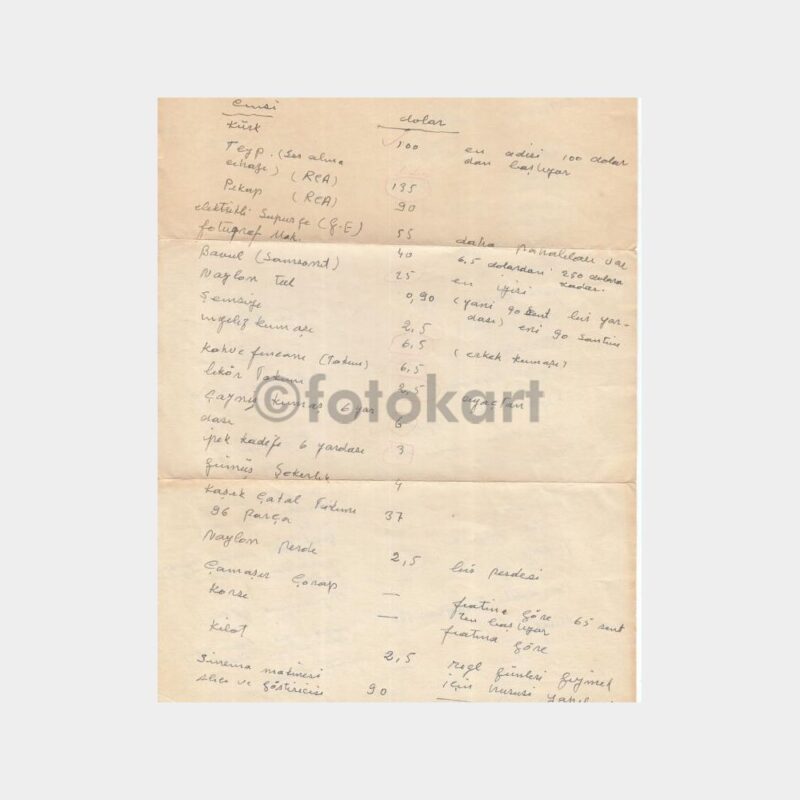 Cinsi dolar
Kürk 100 en adisi 100 dolar
dan başlıyor
Teyp. (Ses alma
cihazı) (RCA) 135
Pikap (RCA) 90
elektrikli Süpürge (G.E) 55 daha pahalıları var
fotuğraf Mak. 40 6,5 dolardan 250 dolara
kadar.
Bavul (Samsonit) 25 en iyisi
Naylon Tül 0,90 (yani 90 sent bir yar-
dası) eni 90 santim
Şemsiye 2,5
ingiliz kumaşı 6,5 (erkek kumaşı)
Kahve fincanı (Takım) 6,5
likör Takımı 2,5 ayaktan
Çayniş kumaş 6 yar 6
dası
ipek kadife 6 yardası 3
Gümüş Şekerlik 4
Kaşık Çatal Takımı 37
96 parça
Naylon perde 2,5 bir perdesi
Çamaşır Çorap — fiatına göre 65 sent
ten başlıyor
Korse — fiatına göre
Kilot 2,5 regl günleri giymek
için hususi
Sinema makinesi
alıcı ve göstericisi 90
©fotokart